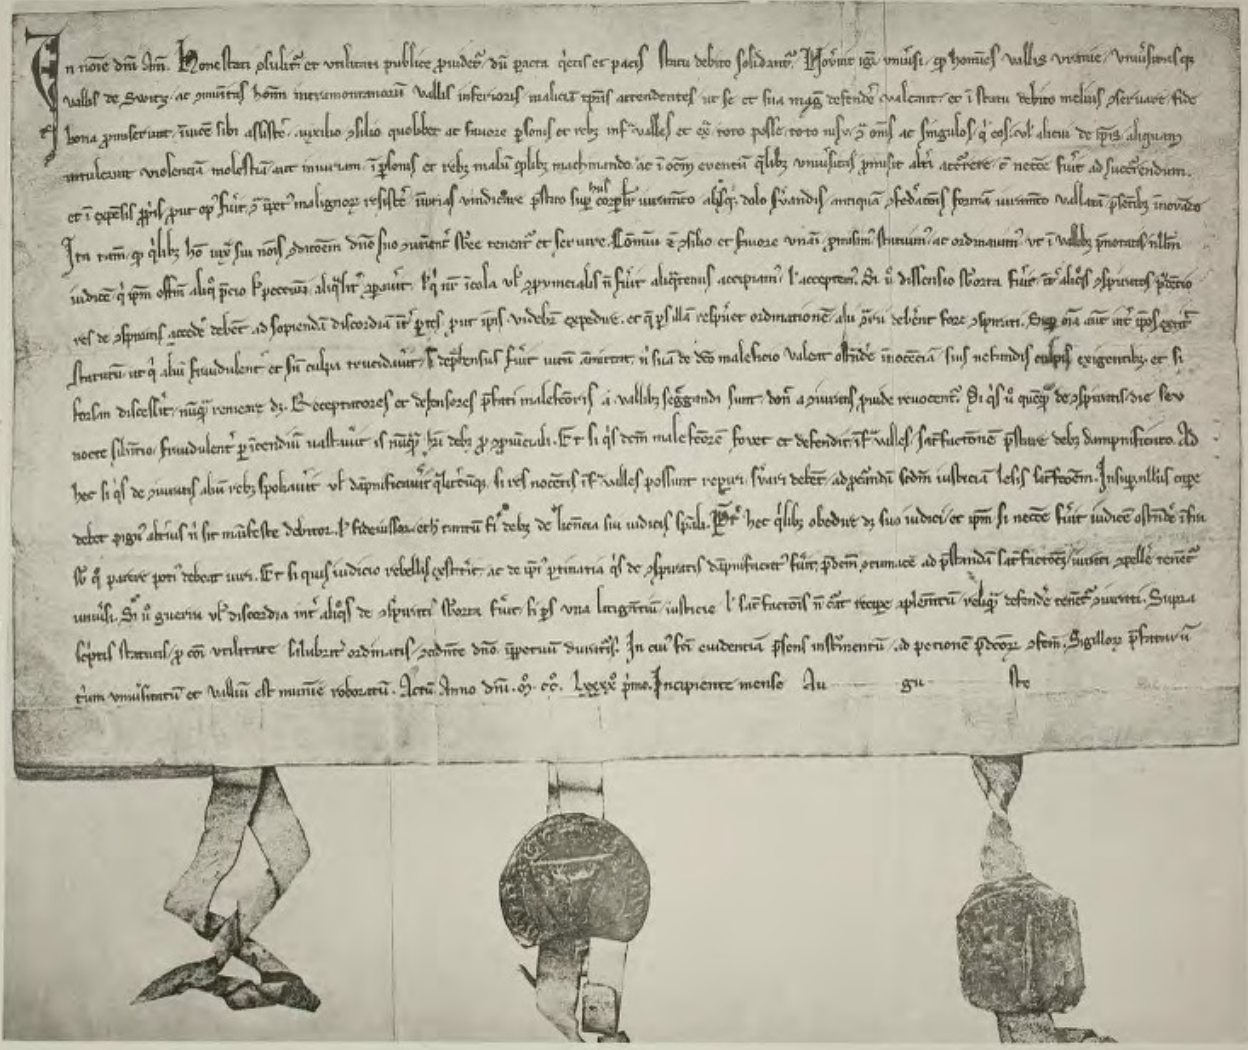 In noīe dn̄i Am̄. Honestati ꝯsulit᷑ et utilitati publice ꝓuidet᷑, dū pacta q̇etis et pacis statu debito solidant᷑. Nou̓int igit᷑ uniu̓si, ꝙ hoīes vallis uranie, uniu̓sitasq;
vallis de Switz, ac ꝯmunitas hoīm intramontanoꝝ vallis inferioris, maliciā tꝑis attendentes, ut se et sua magis defende᷑ valeant, et ī statu debito melius ꝯseruare, fide
bona ꝓmiserunt, īuicē sibi assiste᷑, auxilio ꝯsilio quolibet ac fauore ꝑsonis et rebȝ, infᵃ valles et exᵃ, toto posse, toto nisu, ꝯᵃ om̄s ac singulos, q̇ eos, ul̓ alicui de ip̄is, aliquam
intulerint violenciā, molestiā, aut iniuriam, ī ꝑsonis et rebȝ malū qdlibȝ machinando, ac ī oēm euentū q̇libȝ uniu̓sitas ꝓmisit alt̓i accurre᷑, cū necēē fu̓it ad succurrendum.
et ī expēsis ꝓp̓is, ꝓut opꝰ fu̓it, ꝯᵃ īpetꝰ malignoꝝ resiste᷑, īiurias vindicare, p̄stito suꝑ hiis corꝑaliter iuram̄to, absq; dolo s̓uandis, antiquā ꝯfedat̄ois formā iuram̄to vallatā, p̄sētibȝ innouādo
Ita tam̄, ꝙ q̇libȝ hō iux̓ sui nōīs ꝯdicōem dn̄o suo ꝯuenient᷑ sb̄ee teneat᷑ et seruire. Com̄uni ēt ꝯsilio et fauore unāi ꝓmisimꝰ, statuimꝰ, ac ordinauimꝰ, ut ī vallibȝ p̄notatis nllm̄
iudicē, q̇ ip̄m offm̄ aliq̇ p̄cio, ul̓ peccunia, aliqlit᷑ ꝯpau̓it, ul̓ q̇ nr̄ īcola ul̓ ꝯꝓuincialis n̄ fu̓it, aliqtenus accipiamꝰ, ul̓ acceptemꝰ. Si ū dissensio sb̄orta fu̓it, int̓ aliq̇s ꝯspiratos, p̄dēcio
res de ꝯspiratis accede᷑ debent, ad sopiendā discordiā int̓ ꝑtes, ꝓut ip̄is videbit᷑ expedire, et q̄ ꝑs illā respu̓et ordinationē, alii ꝯrii debe̓nt fore ꝯspirati. Suꝑ oīa aut̄ int̓ ip̄os extitit
statutū, ut q̇ aliū fraudulent᷑ et sn̄ culpa trucidau̓it, si dep̄hensus fu̓it, uitā amittat, n̄ suā de dc̄o maleficio valeat ostende᷑ īnocēciā, suis nefandis culpis exigentibȝ, et si
forsan discesserit, nūquā remeare dȝ. Receptatores et defensores p̄fati malefc̄oris, a vallibȝ seg̓gandi sunt, donec a ꝯiuratis ꝓuide reuocent᷑. Si q̇s ū quēq̄ de ꝯspiratis, die seu
nocte silentio, fraudulent᷑ ꝑ īcendiū uastau̓it, is nūq̄ hr̄i debȝ ꝓ ꝯꝓuinciali. Et si q̇s dc̄m malefc̄orē fouet et defendit, infᵃ valles, satisfactonē p̄stare debȝ dampnificato. Ad
hec si q̇s de ꝯiuratis aliū rebȝ spoliau̓it, ul̓ dāpnificau̓it q̇lit̓cūq;, si res nocentis infᵃ valles possunt repiri, s̓uari debent, ad ꝓcurandā scd̄m iusticiā lesis satisfac̄oem. Insuꝑ nullus cape
debet pignꝰ alt̓ius, n̄ sit maīfeste debitor, ul̓ fideiussor, et h̄ tantū fi᷑i debȝ de licēncia sui iudicis spāli. Pret̓ hec q̇libȝ obedire dȝ suo iudici, et ip̄m si necēē fu̓it, iudicē ostende᷑ infᵃ
sub q̇ parere potiꝰ debeat iuri. Et si quis iudicio rebellis exstit̓it, ac de ipīꝰ ꝑtinatia q̇s de ꝯspiratis dāpnificatꝰ fu̓it, p̄dcm̄ ꝯtumacē ad p̄standā satisfac̄oem, iurati ꝯpelle᷑ tenent᷑
uniu̓si. Si ū guerra ul̓ discordia int̓ aliq̇s de ꝯspiratis sb̄orta fu̓it, si ꝑs una litigantiū, iusticie ul̓ satisfact̄ois n̄ curat recipe ꝯplem̄tū, reliq̄ defende᷑ tenent᷑ ꝯiurati. Supra
sc̓ptis statutis, ꝓ coī utilitate salubrit᷑ ordinatis, ꝯcedente dn̄o, īꝑpetuū duraturis. In cuiꝰ fc̄i euidentiā p̄sens inst̓mentū, ad peticionē p̄dc̄oꝝ ꝯfectū, Sigilloꝝ p̄fataꝝ
t̓um uniu̓sitatū et valliū est munīīe roboratū. Actū Anno dn̄i. M̊. CC̊. LXXXX̊ p̓mo. Incipiente mense Au gu sto